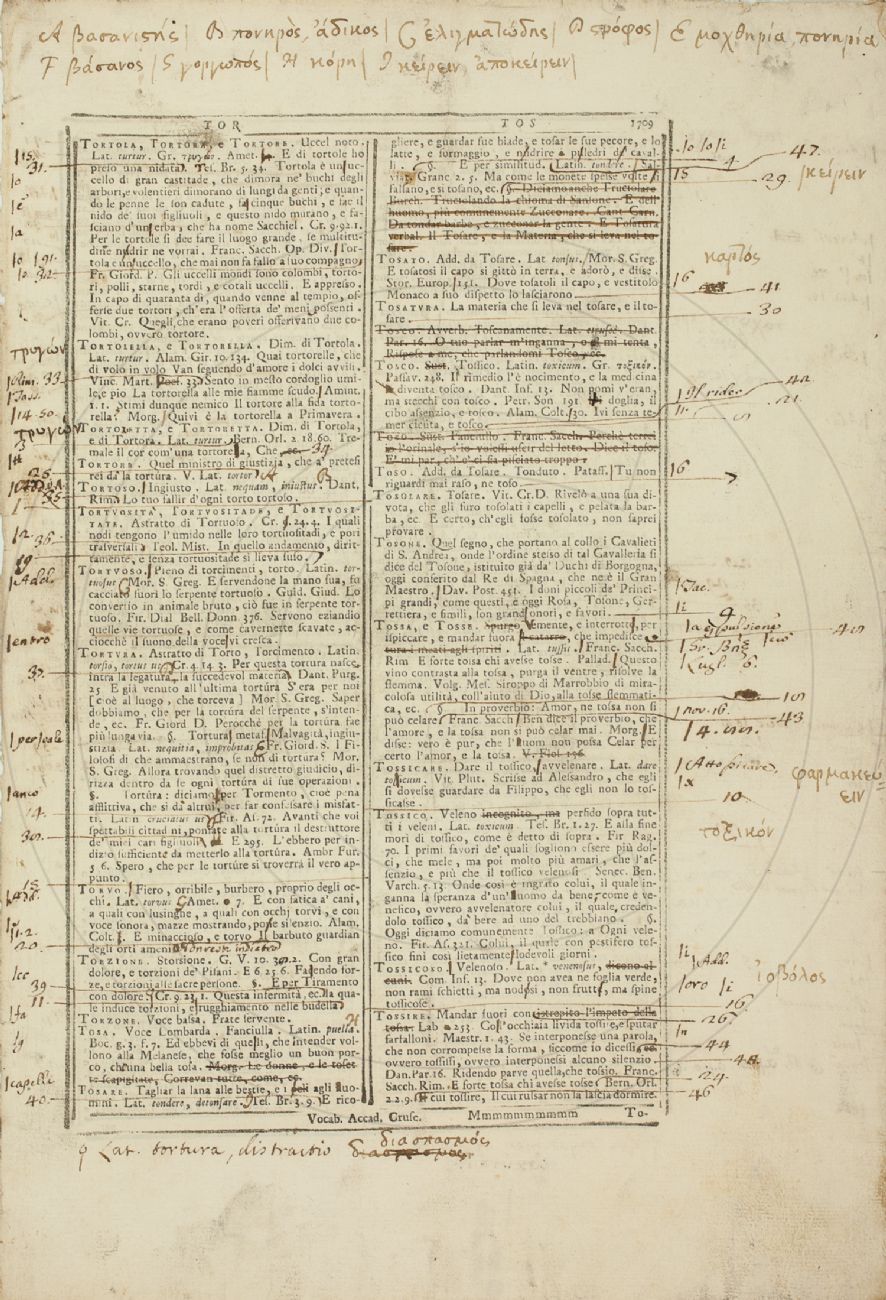 A βασανιστής| B πονηρὸς, ἄδικος| C ἑλιγματώδης| D στρόφος| E μοχθηρία, πονηρία
F βάσανος| G γοργωπός| H κόρη| I κείρειν, ἀποκείρειν|
TOR TOS 1709
TORTOLA, TORTORA, e TORTORE. Uccel noto.
Lat. turtur. Gr. τρυγών. Amet. E di tortole ho
preso una nidata. Tes. Br. 5. 34. Tortola è uc-
cello di gran castitade, che dimora ne' buchi degli
arbori, e volentieri dimorano di lungi da genti; e quan-
do le penne le son cadute, fa cinque buchi, e fae il
nido de' suoi figliuoli, e questo nido murano, e fa-
sciano d'un'erba, che ha nome Sacchiel. Cr. 9.92.1.
Per le tortole si dee fare il luogo grande, se multitu-
dine nudrir ne vorrai. Franc. Sacch. Op. Div. Tor-
tola è un uccello, che mai non fa fallo a suo compagno.
Fr. Giord. P. Gli uccelli mondi sono colombi, torto-
ri, polli, starne, tordi, e cotali uccelli. E appresso.
In capo di quaranta dì, quando venne al tempio, of-
ferse due tortori, ch'era l'offerta de' meni possenti.
Vit. Cr. Quegli, che erano poveri offerivano due co-
lombi, ovvero tortore.
TORTOLELLA, e TORTORELLA. Dim. di Tortola.
Lat. turtur. Alam. Gir. 10. 134. Quai tortorelle, che
di volo in volo Van seguendo d'amore i dolci avvili.
Vinc. Mart. 33. Sento in mesto cordoglio umi-
le, e pio La tortorella alle mie fiamme scudo. Amut.
1. 1. Stimi dunque nemico Il tortore alla fida torto-
rella? Morg. Quivi è la tortorella a Primavera.
TORTOLETTA, e TORTORETTA. Dim. di Tortola,
e di Tortora. Lat. turtur. Bern. Orl. 2. 18.60. Tre-
male il cor com'una tortoretta, Che, ec. 34.
TORTORE. Quel ministro di giustizia, che a' pretesi
rei dà la tortura. V. Lat. tortor
TORTOSO. Ingiusto. Lat. nequam, iniustus. Dant.
Rim. Lo tuo fallir d'ogni torto tortoso.
TORTUOSITÀ, TORTUOSITADE, e TORTUOSI-
TATE. Astratto di Tortuoso. Cr. 5. 24. 4. I quali
nodi tengono l'umido nelle loro tortuositadi, e pori
trasversali. Teol. Mist. In quello andamento, dirit-
tamente, e senza tortuositade si lieva suso.
TORTUOSO. Pieno di torcimenti, torto. Latin. tor-
tuosus. Mor. S. Greg. E servendone la mano sua, fu
cacciato fuori lo serpente tortuoso. Guid. Giud. Lo
converstio in animale bruto, ciò fue in serpente tor-
tuoso. Fir. Dial. Bell. Donn. 376. Servono eziandio
quelle vie tortuose, e come cavernette scavate, ac-
ciocchè il suono della voce ivi cresca.
TORTURA. Astratto di Torto, Torcimento. Latin.
torsio, tortus us. Cr. 4. 14. 3. Per questa tortura nasce
intra la legatura, la succedevol materia. Dant. Purg.
25. E già venuto all'ultima tortura S'era per noi
[cioè al luogo, che torceva] Mor. S. Greg. Saper
dobbiamo, che per la tortura del serpente, s'inten-
de, ec. Fr. Giord D. Perocchè per la tortura fae
più lunga via. §. Tortura, metaf. Malvagità, ingiu-
stizia. Lat. nequitia, improbitas. Fr. Giord. S. I Fi-
losofi di che ammaestrano, se non di tortura? Mor.
S. Greg. Allora trovando quel distretto giudicio, di-
rizza dentro da se ogni tortura di sue operazioni.
§. Tortura: diciamo per Tormento, cioè pena
afflittiva, che si dà altrui, per far confessare i misfat-
ti. Latin cruciatus us. Fir. As. 72. Avanti che voi
spettabili cittadini, poniate alla tortura il destruttore
de' miei cari figliuoli. E 295. L'ebbero per in-
dizio sufficiente da metterlo alla tortura. Ambr Fur.
5 6. Spero, che per le torture si troverrà il vero ap-
punto.
TORVO. Fiero, orribile, burbero, proprio degli oc-
chi. Lat. torvus. Amet. 7. E con fatica a' cani,
a quali con lusinghe, a quali con occhj torvi, e con
voce sonora, mazze mostrando, pose silenzio. Alam.
Colt. E minaccioso, e torvo Il barbuto guardian
degli orti ameni
TORZIONE. Storsione. G. V. 10. 2. Con gran
dolore, e torzioni de' Pisani. E 6 25 6. Facendo for-
ze, e torzioni alle sacre persone. §. E per Tiramento
con dolore. Cr. 9. 23. 1. Questa infermità, ec. la qua-
le induce torzioni, e rugghiamento nelle budella
TORZONE. Voce bassa. Frate servente.
TOSA. Voce Lombarda. Fanciulla. Latin. puella.
Boc. g. 3. f. 7. Ed ebbevi di quelli, che intender vol-
lono alla Melanese, che fosse meglio un buon por-
co, che una bella tosa. Morg. Le donne, e le toset-
te scapigliate, Correvan tutte, come, ec.
TOSARE. Tagliar la lana alle bestie, e i peli agli uo-
mini. Lat. tondere, detonsare. Tes. Br. 3. 9. E rico-
gliere, e guardar sue biade, e tosar le sue pecore, e lo
latte, e formaggio, e nudrire i puledri di caval-
li. §. E per similitud. Latin. tondere. Sal-
vias. Granc. 2. 5. Ma come le monete spesse volte si
falsano, e si tosano, ec. §. Diciamo anche Truciolare
Burch. Truciolando la chioma di Sansone. E dell'
huomo, più comunemente Zucconare. Cant. Carn.
Da tondar barbe, e zucconar la gente. E Tosatura
verbal. Il Tosare, e la Materia, che si leva nel to-
sare.
TOSATO. Add. da Tosare. Lat. tonsus. Mor. S. Greg.
E tosatosi il capo si gittò in terra, e adorò, e disse.
Stor. Europ. 151. Dove tosatoli il capo, e vestitolo
Monaco a suo dispetto lo lasciarono
TOSATURA. La materia che si leva nel tosare, e il to-
sare.
TOSCO. Avverb. Toscanamente. Lat. etruscè. Dant.
Par. 16. O tuo parlar m'inganna, o e' mi tenta,
Rispose a me, che parlandomi Tosco, ec.
TOSCO. Sust. Tossico. Latin. toxicum. Gr. τοξικόν.
Passav. 248. Il rimedio l'è nocimento, e la medicina
le diventa tosco. Dant. Inf. 13. Non pomi v'eran,
ma stecchi con tosco. Petr. Son 191. doglia, il
cibo assenzio, e tosco. Alam. Colt. 30. Ivi senza te-
mer cicuta, e tosco.
TOSO. Sust. Fanciullo. Franc. Sacch. Perchè terrei
in l'orinale, s'io voleSi uscir del letto. Dice il toso.
E' mi par, ch'e' ci sia pisciato troppo.
TOSO. Add. da Tosare. Tonduto. Pataff. Tu non
riguardi mai raso, ne toso
TOSOLARE. Tosare. Vit. Cr. D. Rivelò a una sua di-
vota, che gli furo tosolati i capelli, e pelata la bar-
ba, ec. E certo, ch'egli fosse tosolato, non saprei
provare.
TOSONE. Quel segno, che portano al collo i Cavalieri
di S. Andrea, onde l'ordine stesso di tal Cavalleria si
dice del Tosone, istituito già da' Duchi di Borgogna,
oggi conferito dal Re di Spagna, che ne è il Gran
Maestro. Dav. Post. 451. I doni piccoli de' Princi-
pi grandi, come questi, e oggi Rosa, Tosone, Ger-
rettiera, e simili, son grand'onori, e favori.
TOSSA, e TOSSE. Spurgo Vemente, e interrotto, per
ispiccare, e mandar fuora catarro, che impedisce
tura i meati agli spiriti. Lat. tussis. Franc. Sacch.
Rim E forte toisa chi avesse tosse. Pallad. Questo
vino contrasta alla tossa, purga il ventre, risolve la
flemma. Volg. Mes. Siroppo di Marrobbio di mira-
colosa utilità, coll'aiuto di Dio, alla tosse flemmati-
ca, ec. §. In proverbio: Amor, ne tossa non si
può celare. Franc. Sacch. Ben dice il proverbio, che
l'amore, e la tossa non si può celar mai. Morg. E
disse: vero è pur, che l'uom non possa Celar per
certo l'amor, e la tossa. V. Flos 136
TOSSICARE. Dare il tossico, avvelenare. Lat. dare
toxicum. Vit. Plut. Scrisse ad Alessandro, che egli
si dovesse guardare da Filippo, che egli non lo tos-
sicasse.
TOSSICO. Veleno incognito, ma perfido sopra tut-
ti i veleni. Lat. toxicum. Tes. Br. 1. 27. E alla fine
morì di tossico, come è detto di sopra. Fir Rag.
70. I primi favori de' quali sogliono essere più dol-
ci, che mele, ma poi molto più amari, che l'as-
senzio, e più che il tossico velenosi. Senec. Ben.
Varch. 5. 13 Onde così è ingrato colui, il quale in-
ganna la speranza d'un'uomo da bene, come è ve-
nefico, ovvero avvelenatore colui, il quale, creden-
dolo tossico, dà bere ad uno del trebbiano. §.
Oggi diciamo comunemente Tossico: a Ogni vele-
no. Fir. As. 321. Colui, il quale con pestifero tos-
sico finì così lietamente i lodevoli giorni.
TOSSICOSO. Velenoso. Lat. venenosus, dicono al-
cuni. Com Inf. 13. Dove non avea ne foglia verde,
non rami schietti, ma nodosi, non frutti, ma spine
tossicose.
TOSSIRE. Mandar fuori con istrepito l'impeto della
tossa. Lab. 253. Così occhiaia livida tossire, e sputar
farfalloni. Maestr. 1. 43. Se interponesse una parola,
che non corrompesse la forma, siccome io dicessi, ec.
ovvero tossissi, ovvero interponessi alcuno silenzio.
Dan. Par. 16. Ridendo parve quella, che tossio. Franc.
Sacch. Rim. E forte tossa chi avesse tosse. Bern. Orl.
2. 2. 9. cui tossire, Il cui russar non la lascia dormire.
Vocab. Accad. Crusc. Mmmmmmmmmm To-
ρ Lat. tortura, distractio διασπασμός
47.
29. κείρειν
καρτός
41
30
16
φαρμακεύ
ειν
10
τοξικόν
ἰοβόλος
16.
267
44
24
46